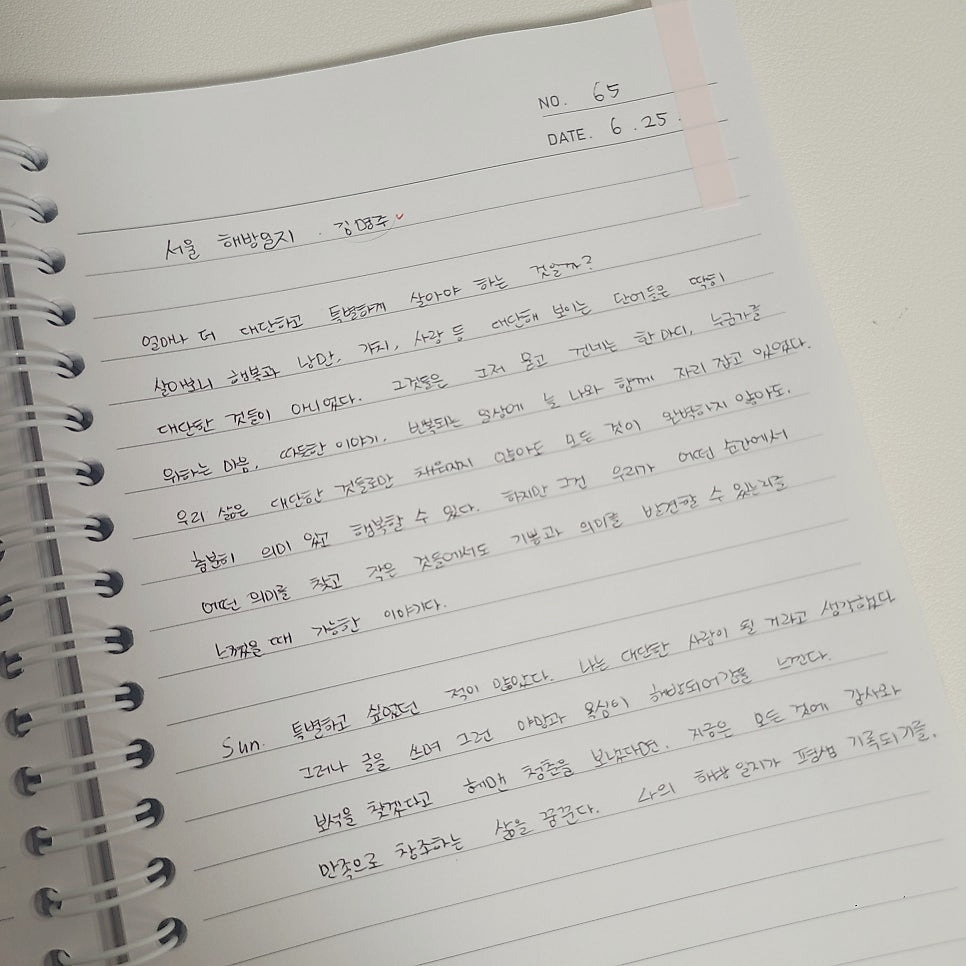 NO. 65
DATE. 6. 25.
서울 해방일지 . 김명주
얼마나 더 대단하고 특별하게 살아야 하는 것일까?
살아보니 행복과 낭만, 가치, 사랑 등 대단해 보이는 단어들은 딱히
대단한 것들이 아니었다. 그것들은 그저 묻고 건네는 한 마디, 누군가를
위하는 마음, 따듯한 이야기, 반복되는 일상에 늘 나와 함께 자리 잡고 있었다.
우리 삶은 대단한 것들로만 채워지지 않아도 모든 것이 완벽하지 않아도,
충분히 의미 있고 행복할 수 있다. 하지만 그건 우리가 어떤 순간에서
어떤 의미를 찾고 작은 것들에서도 기쁨과 의미를 발견할 수 있는지를
느꼈을 때 가능한 이야기다.
Sun. 특별하고 싶었던 적이 많았다. 나는 대단한 사람이 될 거라고 생각했다
그러나 글을 쓰며 그런 야망과 욕심이 해방되어감을 느낀다.
보석을 찾겠다고 헤맨 청춘을 보냈다면, 지금은 모든 것에 감사와
만족으로 창조하는 삶을 꿈꾼다. 나의 해방 일지가 평생 기록되기를.